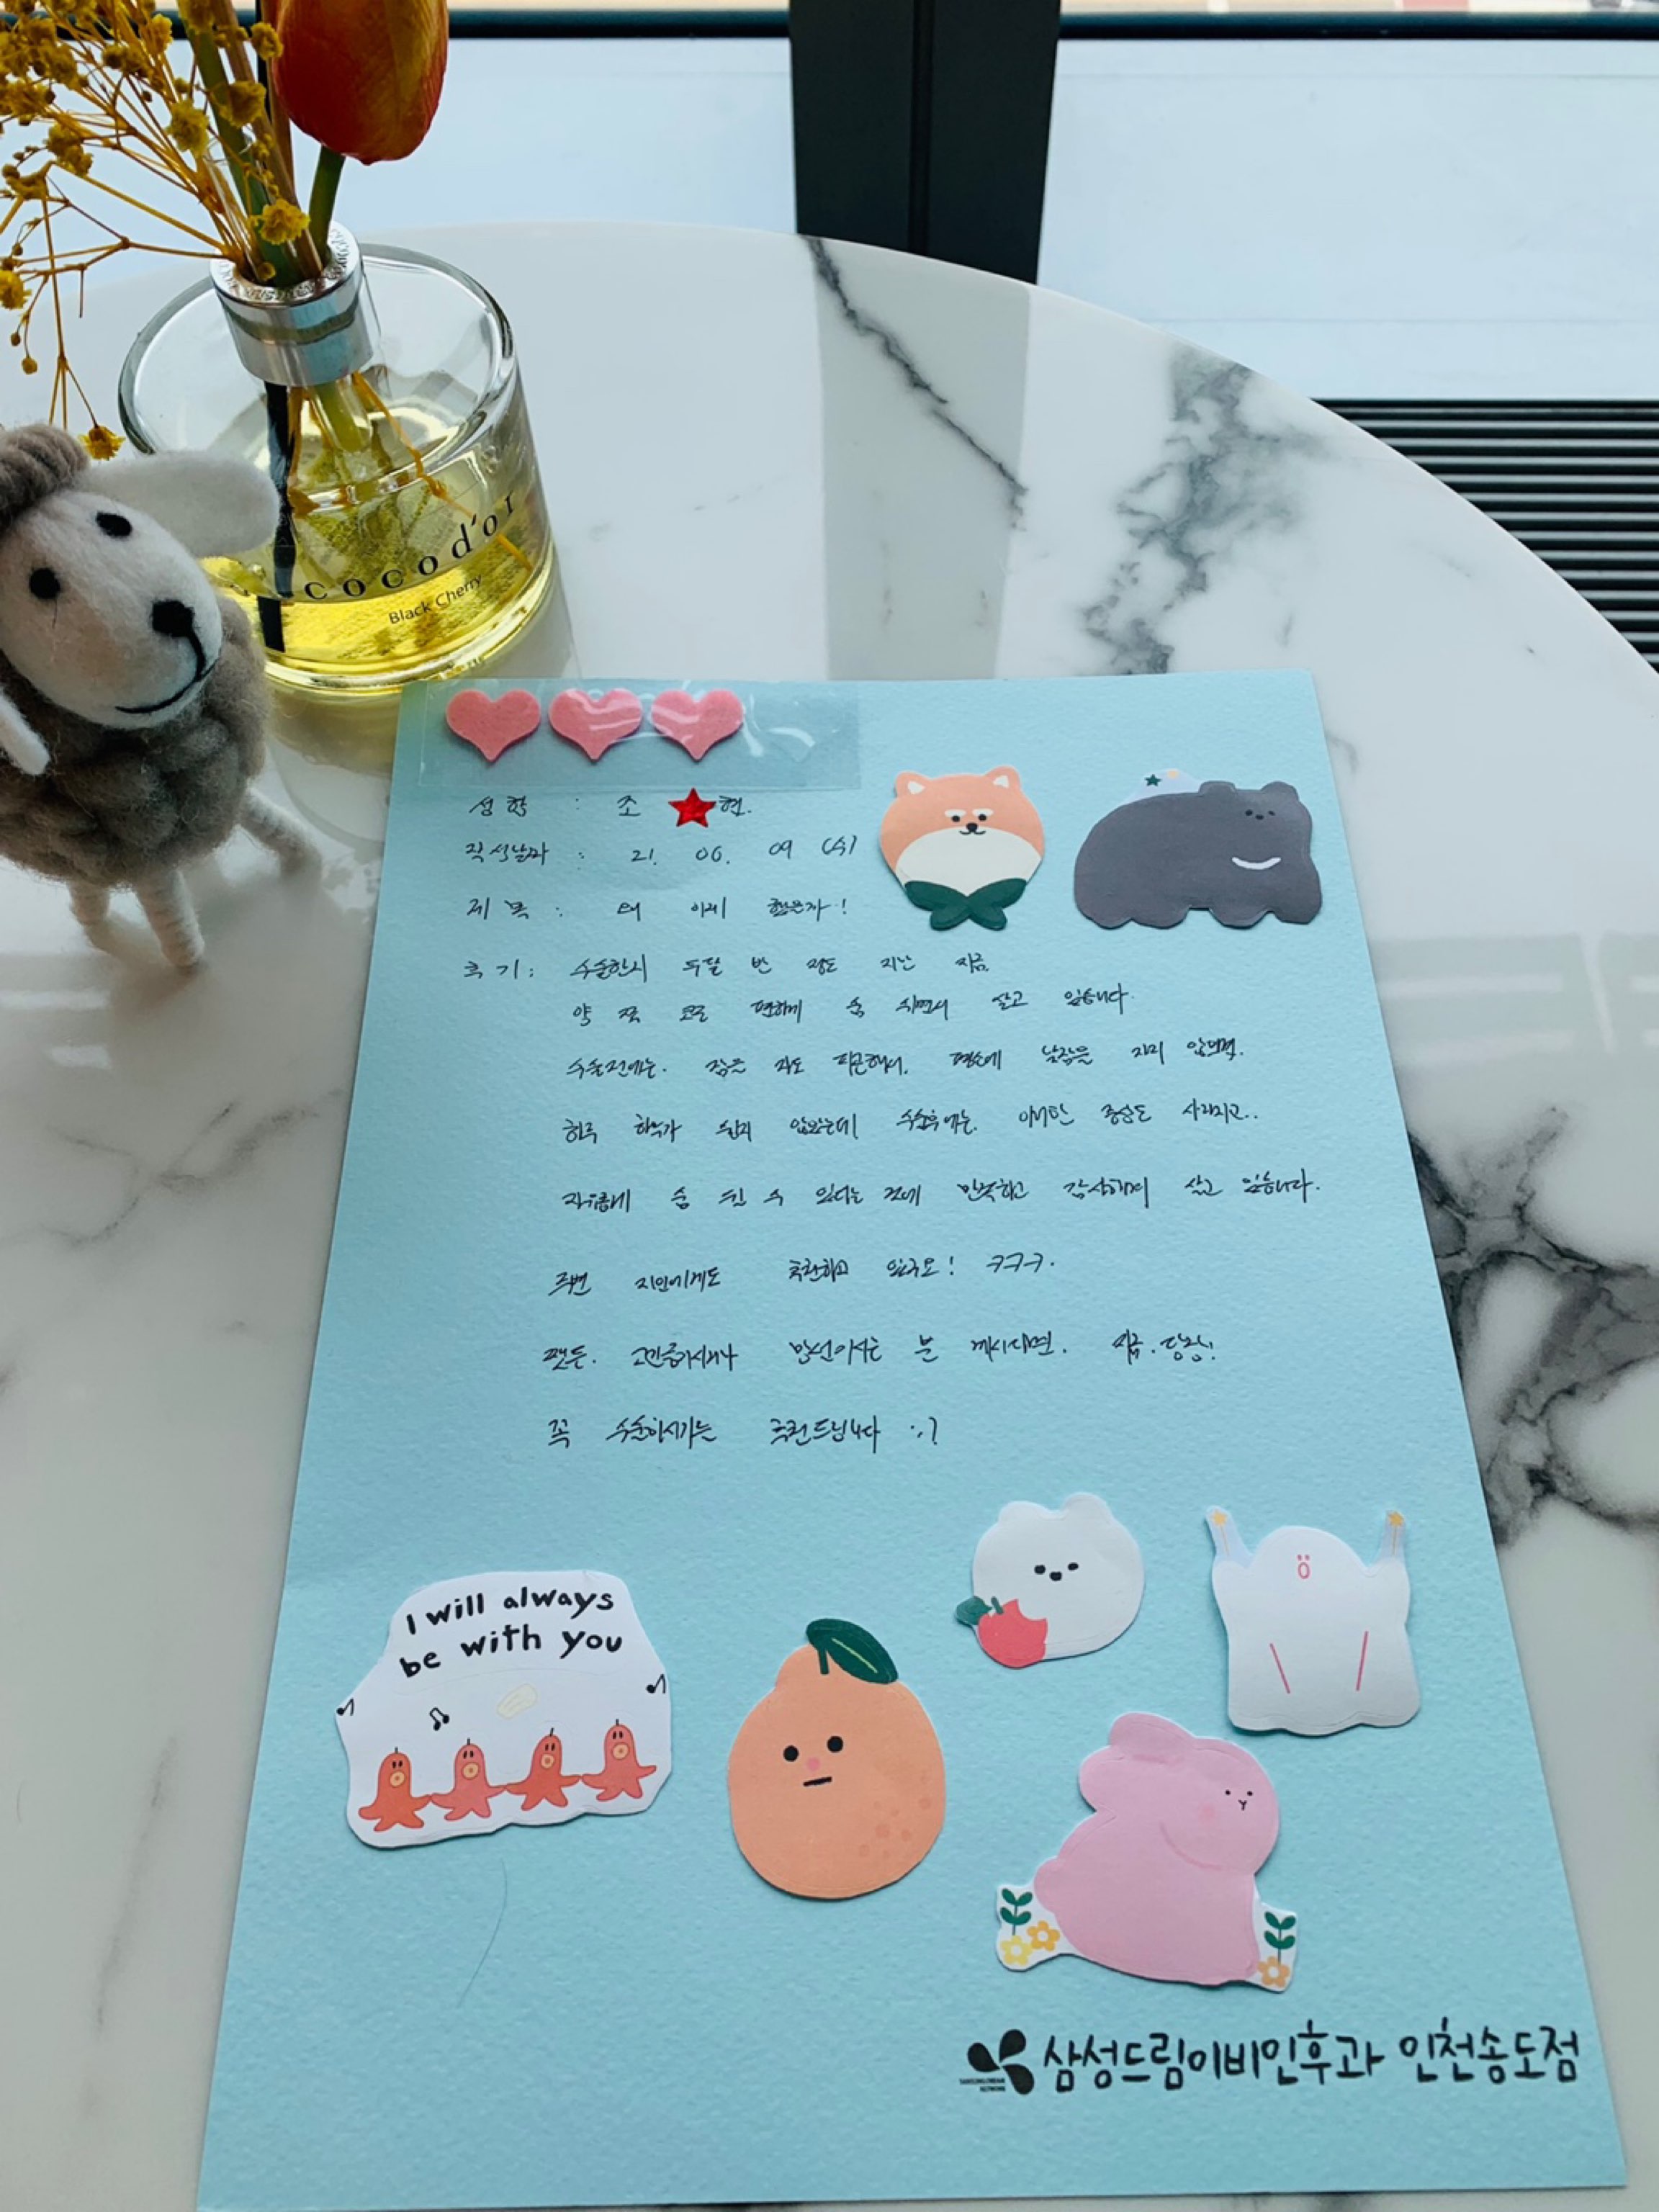 cocod'or
Black Cherry
성함 : 조 현.
작성날짜 : 21. 06. 09 (수)
제목 : 왜 이제 했는가!
후기 : 수술한지 두달 반 정도 지난 지금
약 코로 편하게 숨 쉬면서 살고 있습니다.
수술전에는. 잠을 자도 피곤해서. 평소에 낮잠을 자지 않으면.
하루 하루가 쉽지 않았는데! 수술후에는. 이러한 증상도 사라지고..
자유롭게 숨 쉴 수 있다는 것에 만족하고 감사하며 살고 있습니다.
주변 지인에게도 추천하고 있구요! ㅋㅋㅋ.
쨌든. 고민중이시거나 망설이시는 분 계시다면. 지금.당장!
꼭 수술하시기는 추천드립니다 :)
I will always
be with you
삼성드림이비인후과 인천송도점